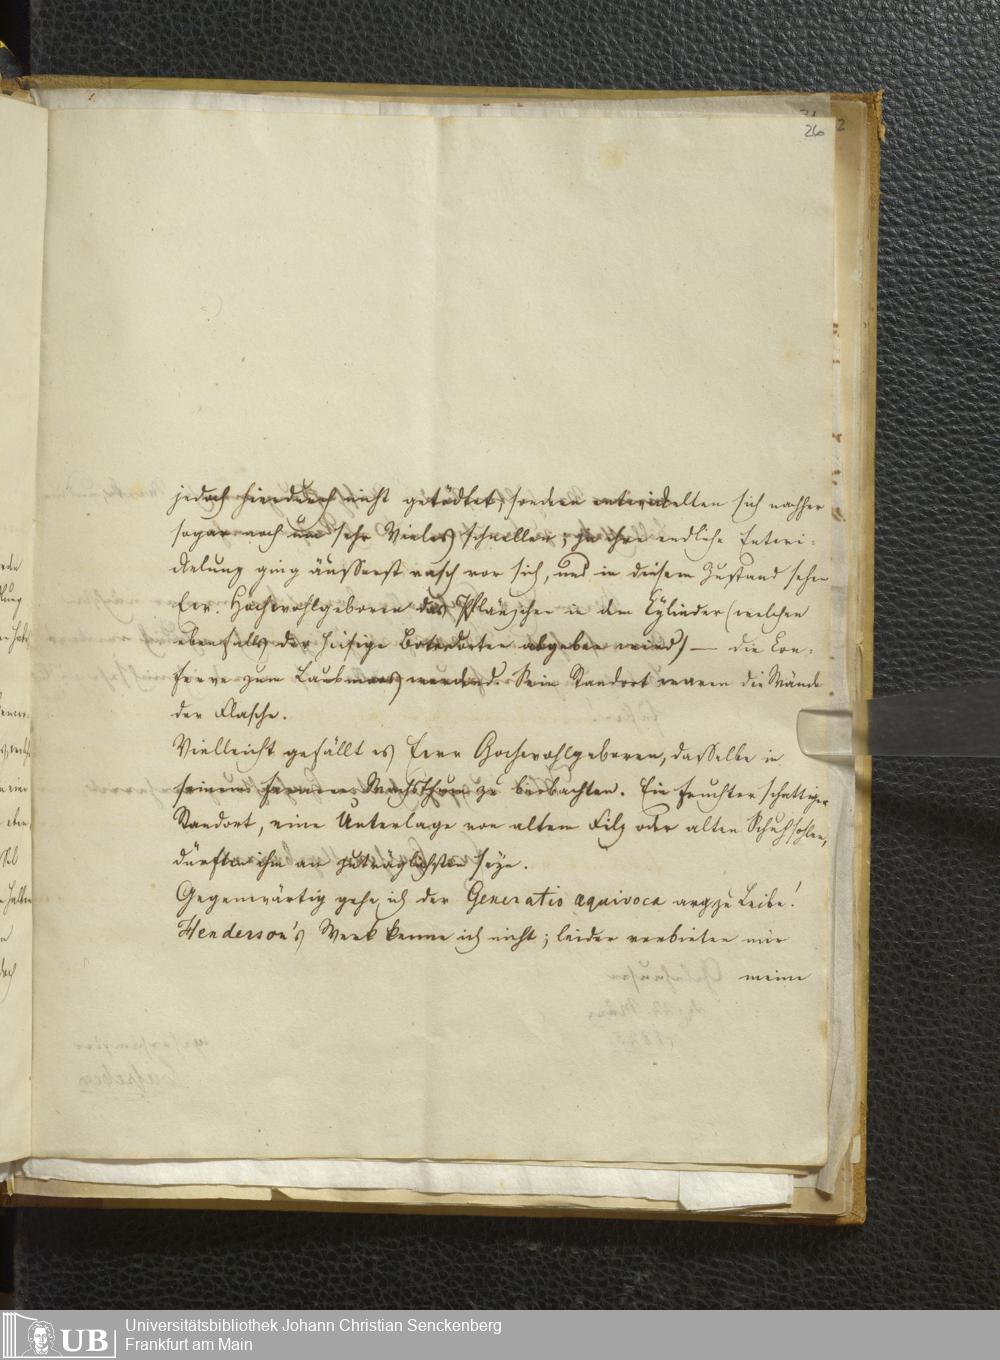 26
jedoch hierdurch nicht getödtet, sondern entwickelten sich nachher
sogar noch um sehr Vieles schneller; ja ihre endliche Entwi-
ckelung ging äusserst rasch vor sich, und in diesem Zustand sehen
Ew. Hochwohlgeboren das Pflänzchen in dem Cylinder (welchen
ebenfalls der hiesige Botendorten abgeben wird) — die Con-
ferve zum Laubmoos werdend. Sein Standort waren die Wände
der Flasche.
Vielleicht gefällt es Euer Hochwohlgeboren, dasselbe in
seinem ferneren Wachsthum zu beobachten. Ein feuchter schattiger
Standort, eine Unterlage von altem Filz oder alten Schuhsohlen,
dürften ihm am zuträglichsten seyn.
Gegenwärtig gehe ich der Generatio aequivoca arg zu Leibe!
Henderson's Werk kenne ich nicht; leider verbieten mir
meine
UB
Universitätsbibliothek Johann Christian Senckenberg
Frankfurt am Main